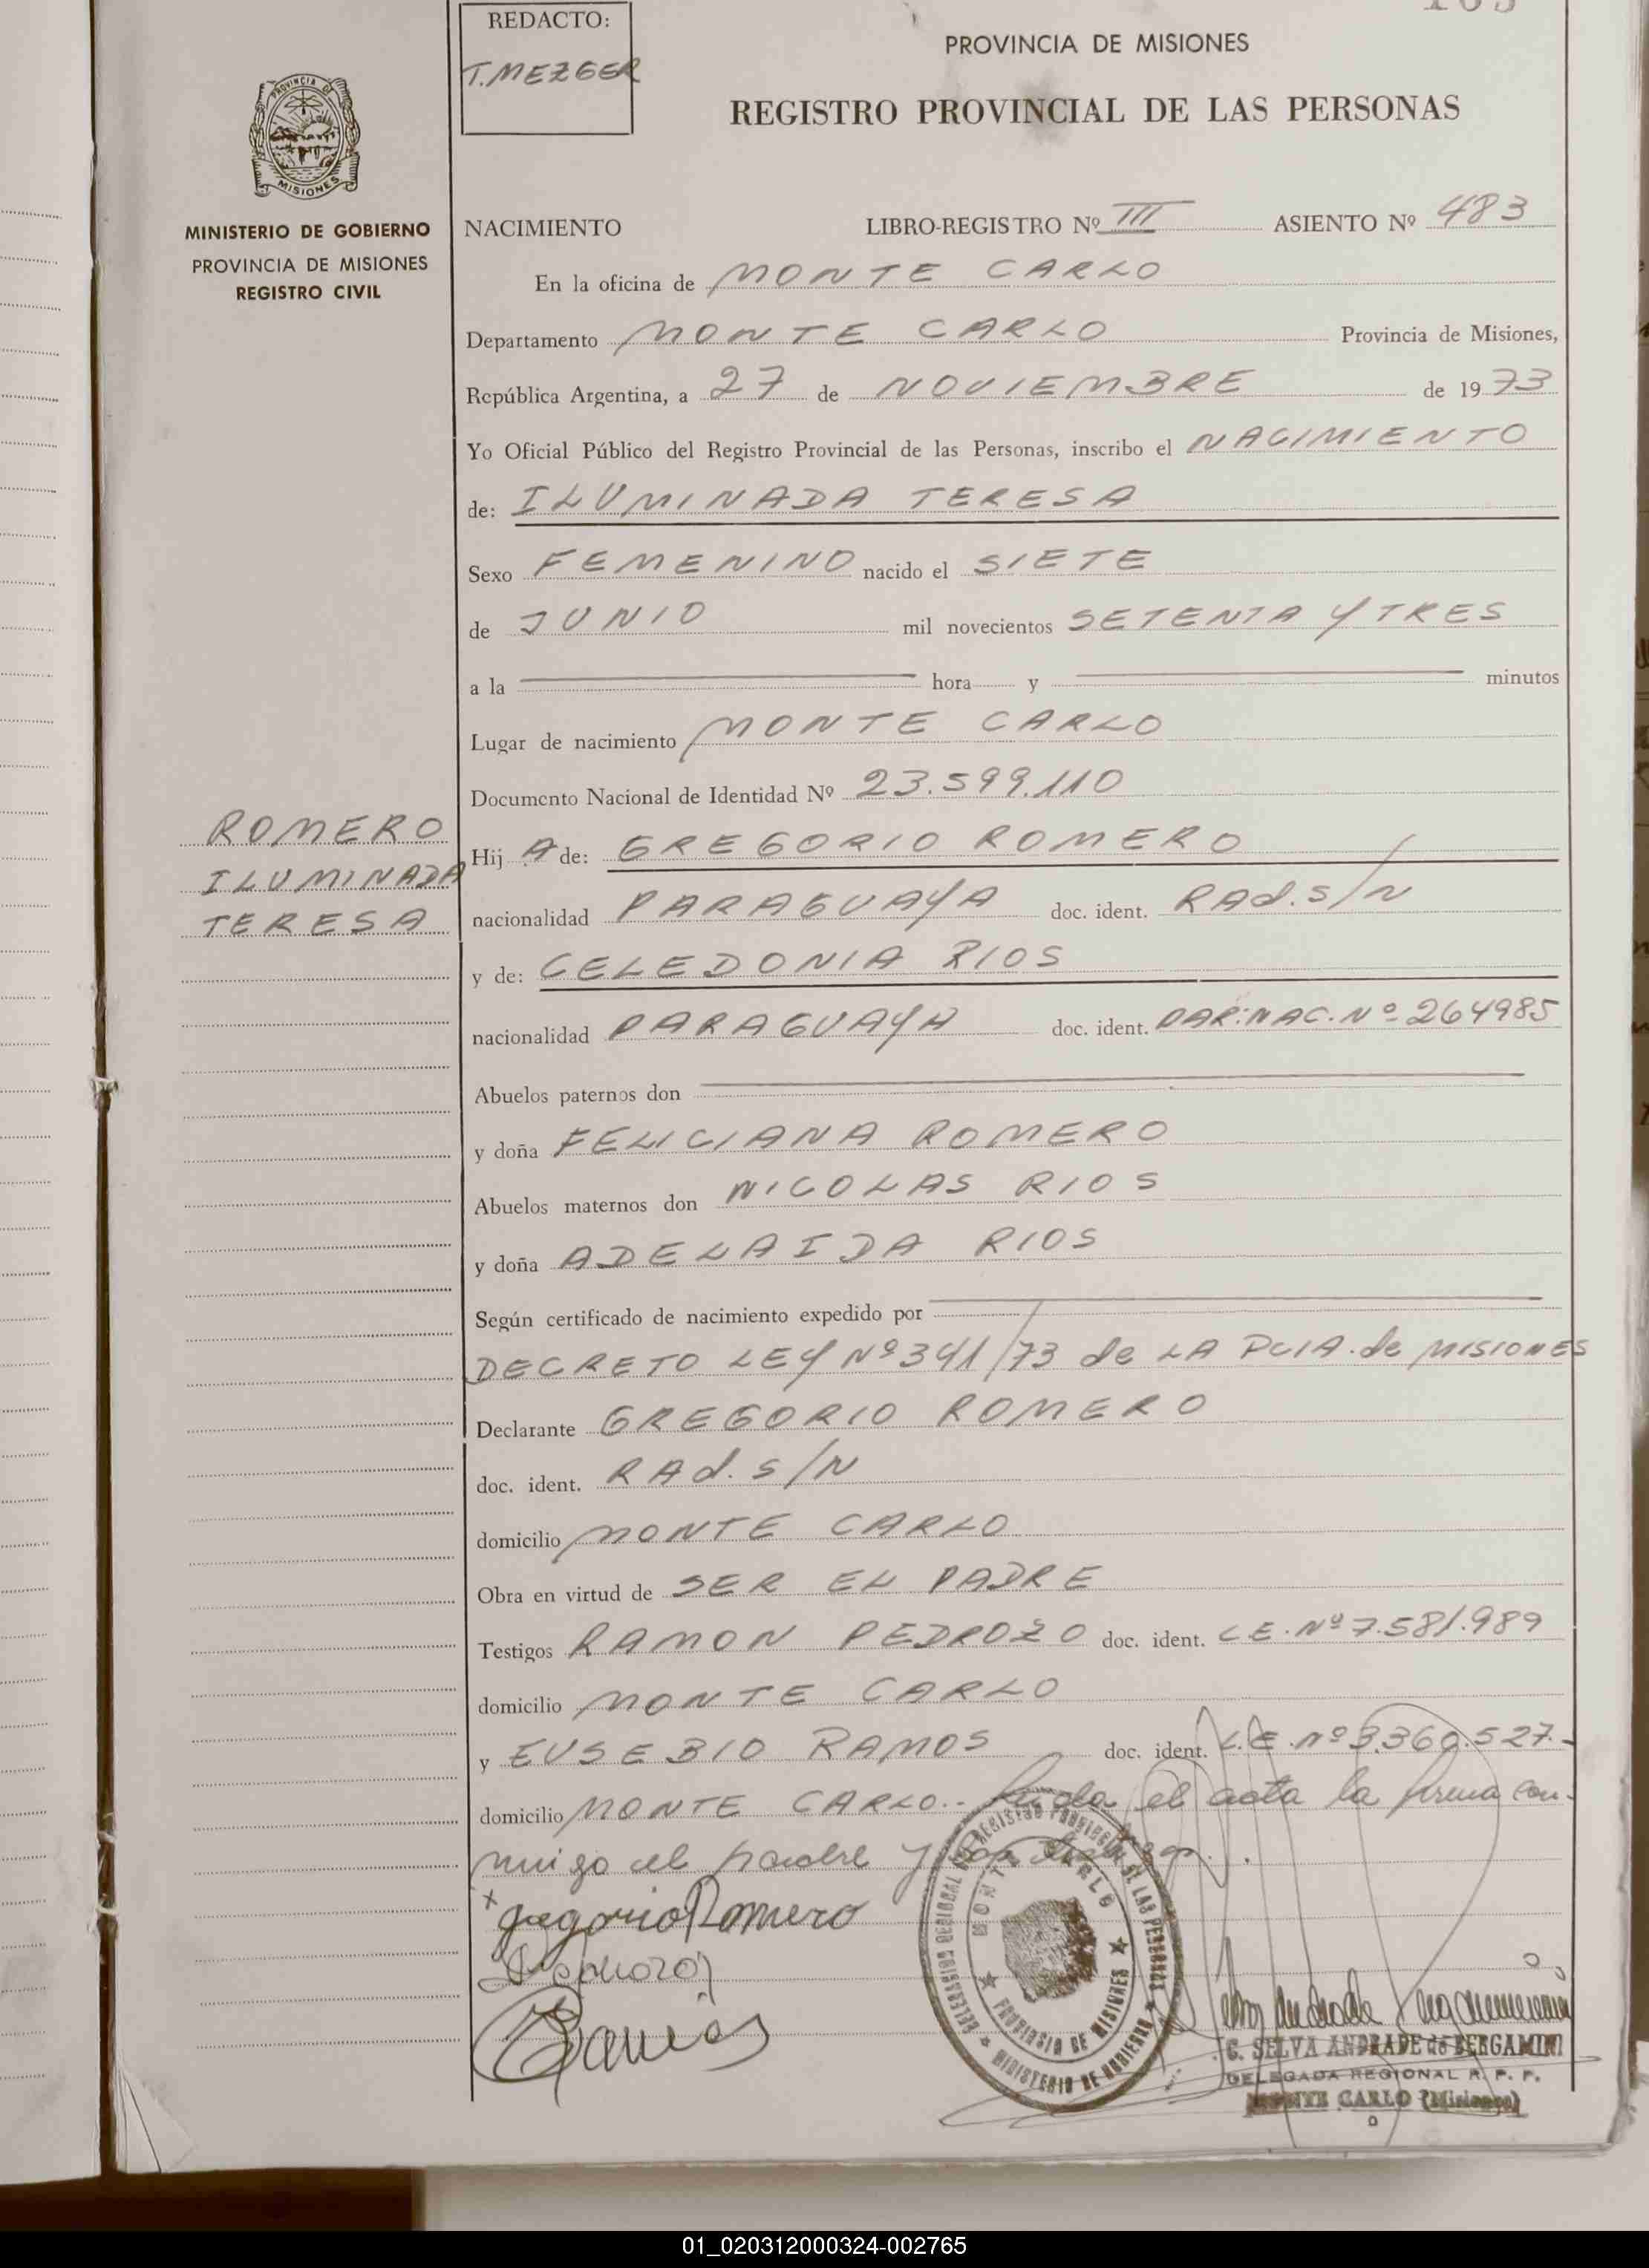 REDACTO:
T. MEZGER
PROVINCIA DE MISIONES
REGISTRO PROVINCIAL DE LAS PERSONAS
PROVINCIA DE
MISIONES
MINISTERIO DE GOBIERNO
PROVINCIA DE MISIONES
REGISTRO CIVIL
NACIMIENTO LIBRO-REGISTRO Nº III ASIENTO Nº 483
En la oficina de MONTE CARLO
Departamento MONTE CARLO Provincia de Misiones,
República Argentina, a 27 de NOVIEMBRE de 1973
Yo Oficial Público del Registro Provincial de las Personas, inscribo el NACIMIENTO
de: ILUMINADA TERESA
Sexo FEMENINO nacido el SIETE
de JUNIO mil novecientos SETENTA Y TRES
a la hora y minutos
Lugar de nacimiento MONTE CARLO
Documento Nacional de Identidad Nº 23.599.110
ROMERO
ILUMINADA
TERESA
Hij A de: GREGORIO ROMERO
nacionalidad PARAGUAYA doc. ident. RAd. S/N
y de: CELEDONIA RIOS
nacionalidad PARAGUAYA doc. ident. PAR: NAC. Nº 264985
Abuelos paternos don
y doña FELICIANA ROMERO
Abuelos maternos don NICOLAS RIOS
y doña ADELAIDA RIOS
Según certificado de nacimiento expedido por
DECRETO LEY Nº 341/73 de LA PCIA. de MISIONES
Declarante GREGORIO ROMERO
doc. ident. RAd. S/N
domicilio MONTE CARLO
Obra en virtud de SER EL PADRE
Testigos RAMON PEDROZO doc. ident. L.E. Nº 7.581.989
domicilio MONTE CARLO
y EUSEBIO RAMOS doc. ident. L.E. Nº 3.360.527.-
domicilio MONTE CARLO.- Leída el acta la firma con-
migo el padre y los testigos.
x gregorio Romero
Ramos
DELEGACION REGIONAL REGISTRO PROVINCIAL DE LAS PERSONAS
MONTE CARLO
PROVINCIA DE MISIONES
MINISTERIO DE GOBIERNO
C. SELVA ANDRADE de BERGAMINI
DELEGADA REGIONAL R. P. P.
MONTE CARLO (Misiones)
01_020312000324-002765